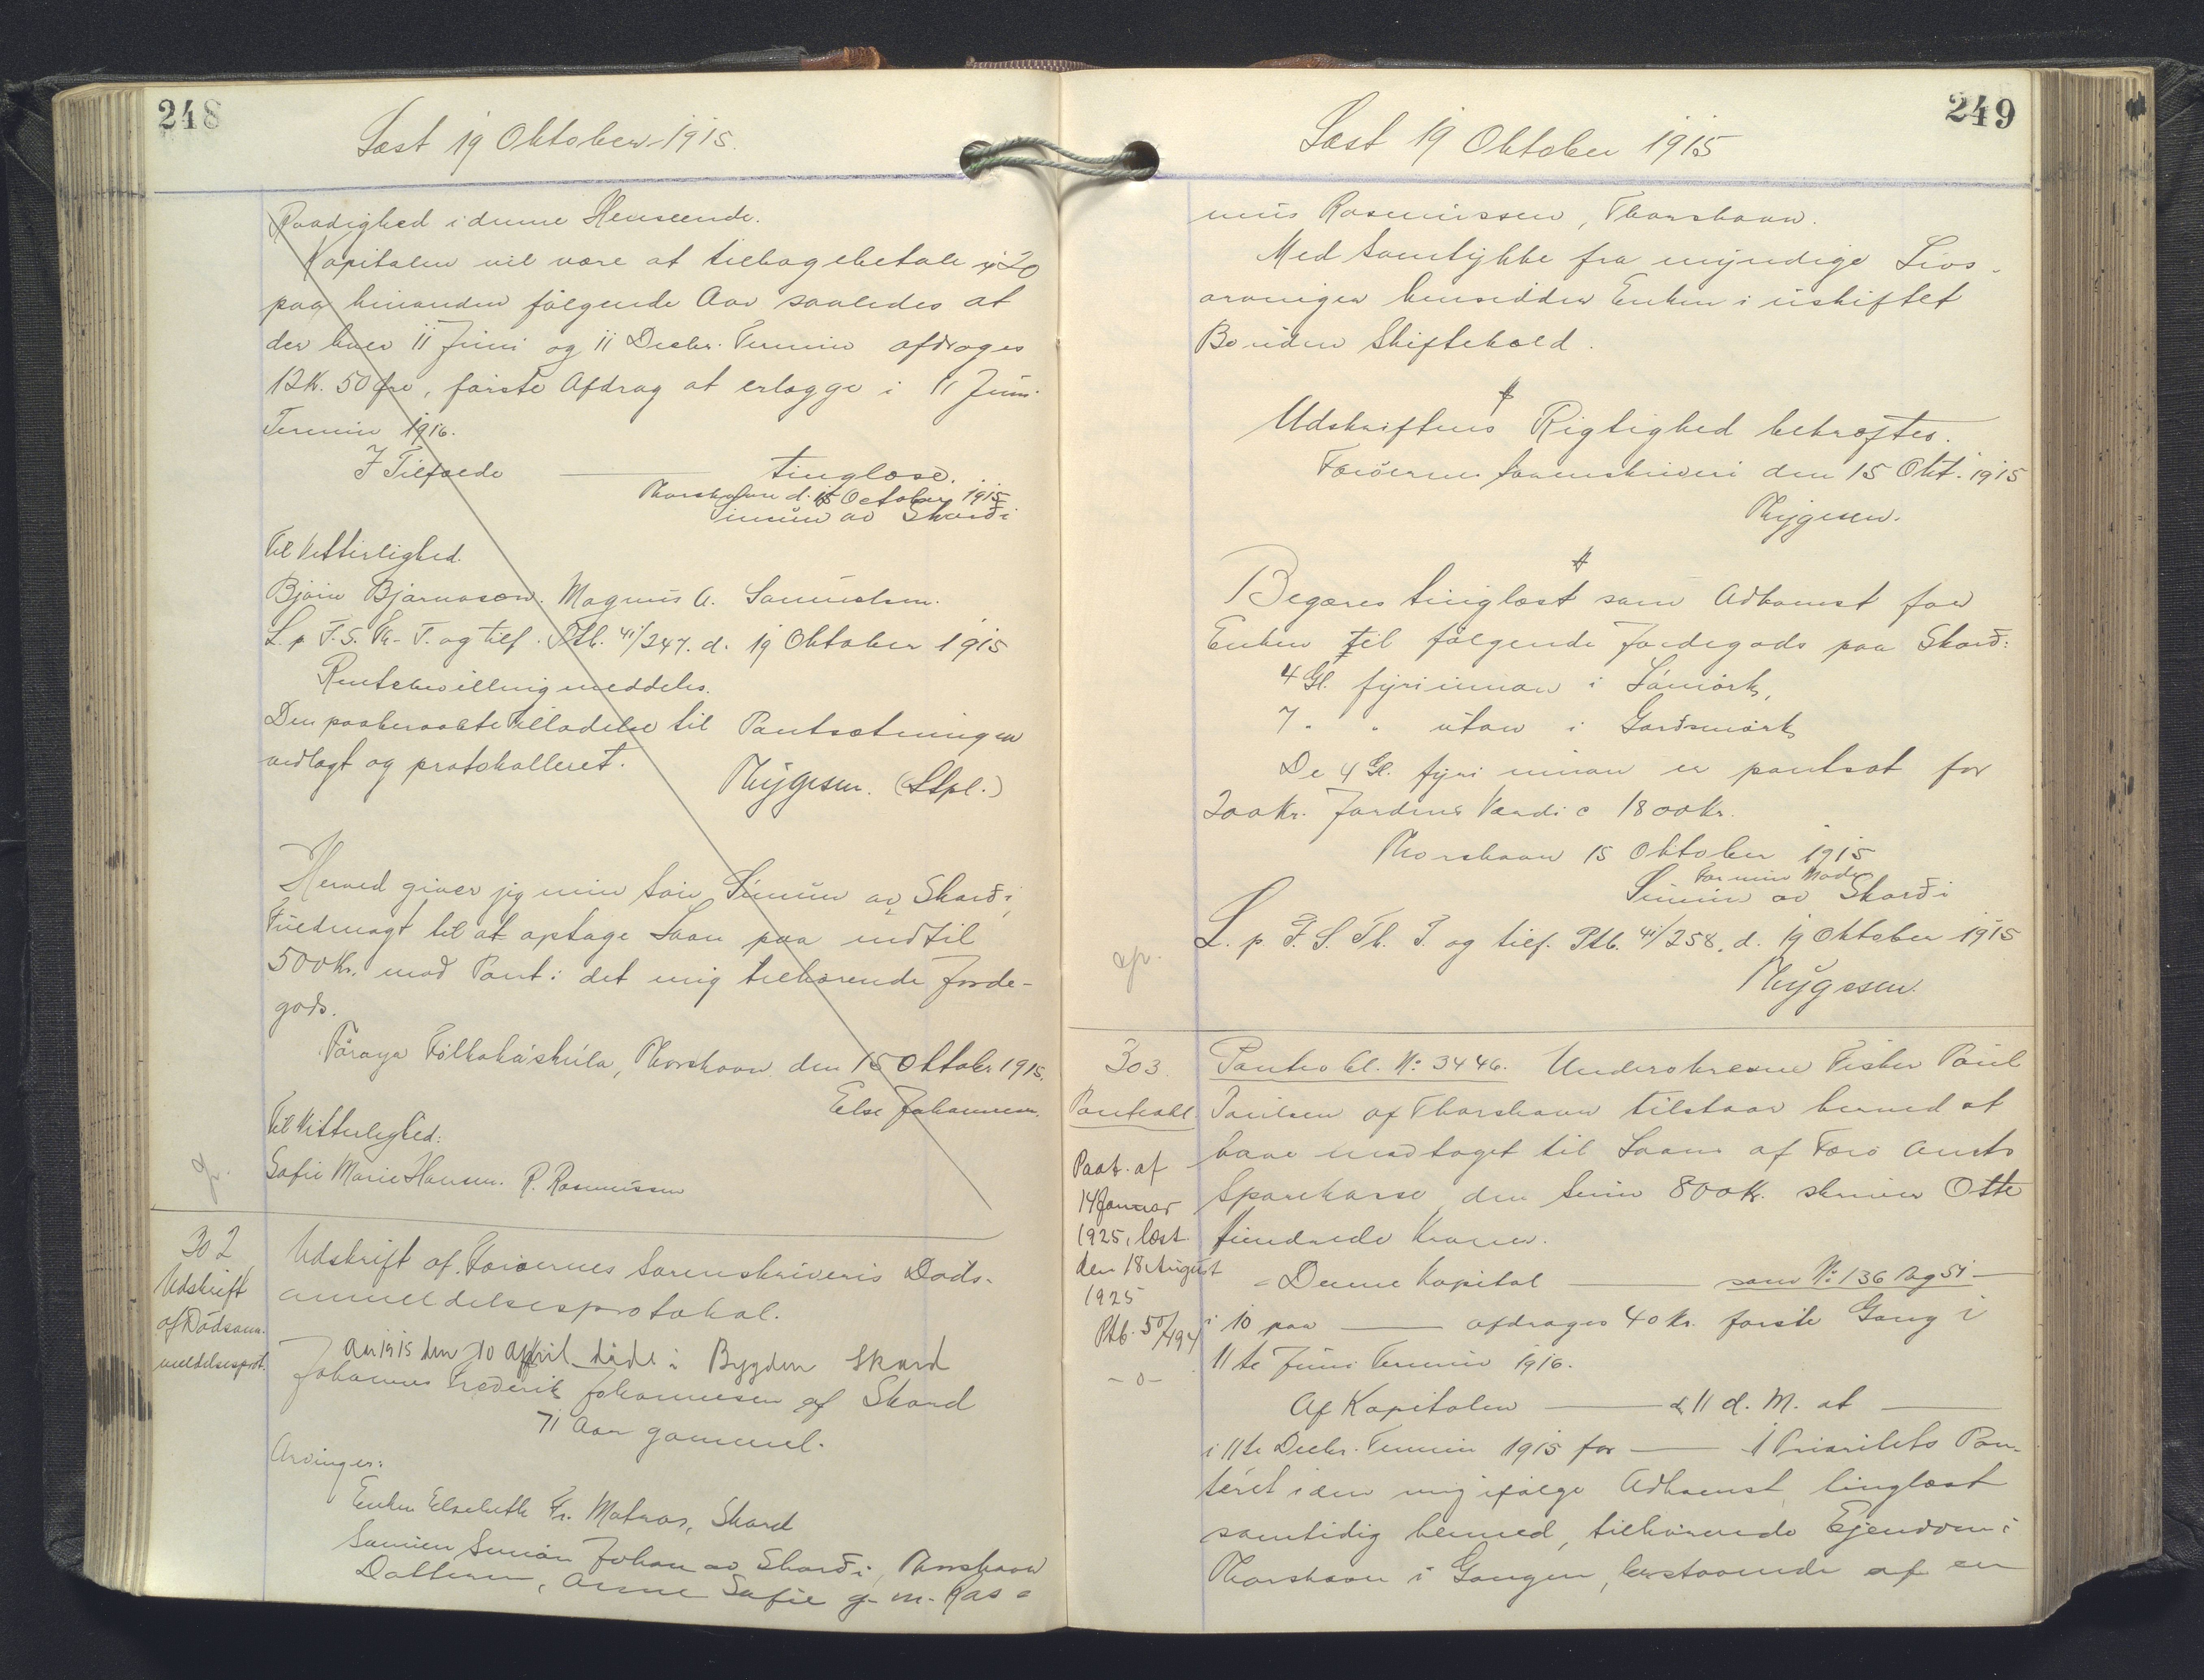 248
Læst 19 Oktober 1915.
Raadighed i denne Henseende.
Kapitalen vil være at tilbagebetale i 20
paa hinanden følgende Aar saaledes at
der hver 11 Juni og 11 Decbr. Termin afdrages
12 K. 50 Øre, første Afdrag at erlægge i 11 Juni
Termin 1916.
I Tilfælde — tinglæse.
Thorshavn d. 15 October 1915
Símun av Skarði
Til Vitterlighed.
Björn Bjarnason. Magnus A. Samuelsen.
L. p. F. S. Th. T. og tilf. Ptb. 41/247. d. 19 Oktober 1915
Rentebevilling meddeles.
Den paaberaabte Tilladelse til Pantsætningen
vedlagt og protokolleret.
Thygesen. (Stpl.)
Herved giver jeg min Søn Símun av Skarði,
Fuldmagt til at optage Laan paa indtil
500 Kr. mod Pant i det mig tilhørende Jorde-
gods.
Föroya Fólkaháskúla, Thorshavn den 15 Oktobr 1915.
Else Johannesen.
Til Vitterlighed:
Sofie Marie Hansen. R. Rasmussen
302
Udskrift
af Dødsan-
meldelsesprot.
Udskrift af Færøernes Sorenskriveris Døds-
anmeldelsesprotokol.
Aar 1915 den 10 April døde i Bygden Skard
Johannes Frederik Johannesen af Skard
71 Aar gammel.
Arvinger:
Enken Elsebeth Fr. Matras, Skard
Sønnen Simon Johan av Skarði, Thorshavn
Datteren, Anne Sofie g. m. Ras=
249
Læst 19 Oktober 1915
mus Rasmussen, Thorshavn.
Med Samtykke fra myndige Livs-
arvinger hensidder Enken i uskiftet
Bo uden Skiftehold.
Udskriftens Rigtighed bekræftes.
Færøernes Sorenskriveri den 15 Okt. 1915
Thygesen.
Begæres tinglæst som Adkomst for
Enken til følgende Jordegods paa Skard:
4 Gl. fyri innan i
7 " " utan i Gardsmørk
De 4 Gl. fyri innan er pantsat for
200 Kr. Jordens Værdi c 1800 Kr.
Thorshavn 15 Oktober 1915
For min Moder
Símun av Skarði
L. p. F. S. Th. T. og tilf. Ptb. 41/258. d. 19 Oktober 1915
Thygesen.
303.
Panteobl.
Paat. af
14 Januar
1925, læst
den 18 August
1925
Ptb. 50/494
-o-
Panteobl. No 3446. Underskrevne Fisker Poul
Poulsen af Thorshavn tilstaar herved at
have modtaget til Laans af Færø Amts
Sparekasse den Sum 800 Kr. skriver Otte
Hundrede Kroner.
= Denne Kapital — som No 136 Pag 51 —
i 10 paa — afdrages 40 Kr. første Gang i
11te Juni Termin 1916.
Af Kapitalen — d 11 d. M. at —
i 11te Decbr. Termin 1915 for — 1 Prioritets Pan-
teret i den mig ifølge Adkomst, tinglæst
samtidig hermed, tilhørende Ejendom i
Thorshavn i Gongen, bestaaende af en